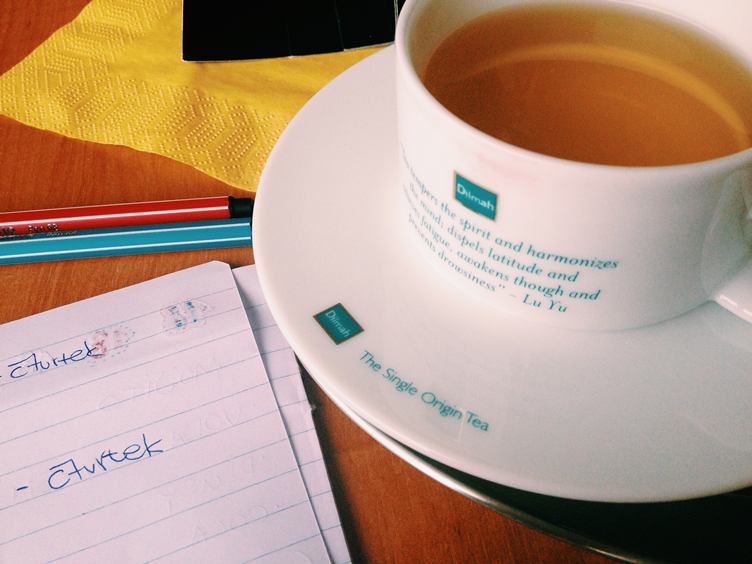 Dilmah
tempers the spirit and harmonizes
the mind; dispels latitude and
fatigue, awakens though and
prevents drowsiness" - Lu Yu
Dilmah
The Single Origin Tea
- čturtek
- čtvrtek